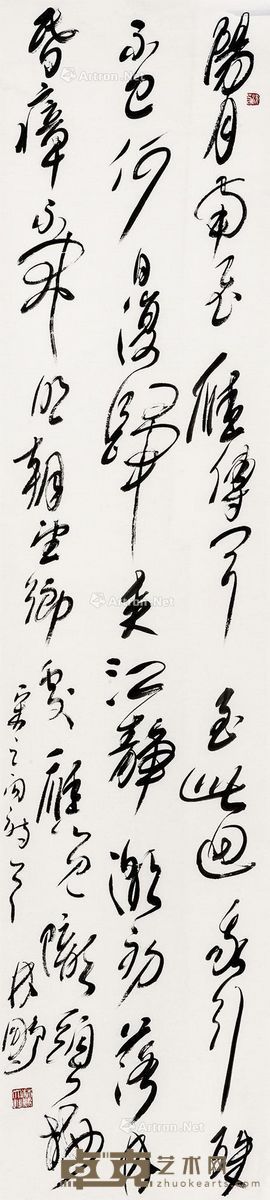 陽月南飛雁傳聞至此迴我行殊
未已何日復歸来江靜潮初落林
昏瘴不開明朝望鄉處應見隴頭梅
宋之问詩 林鵬
Artron.Net
卓克艺术网
www.zhuokearts.com